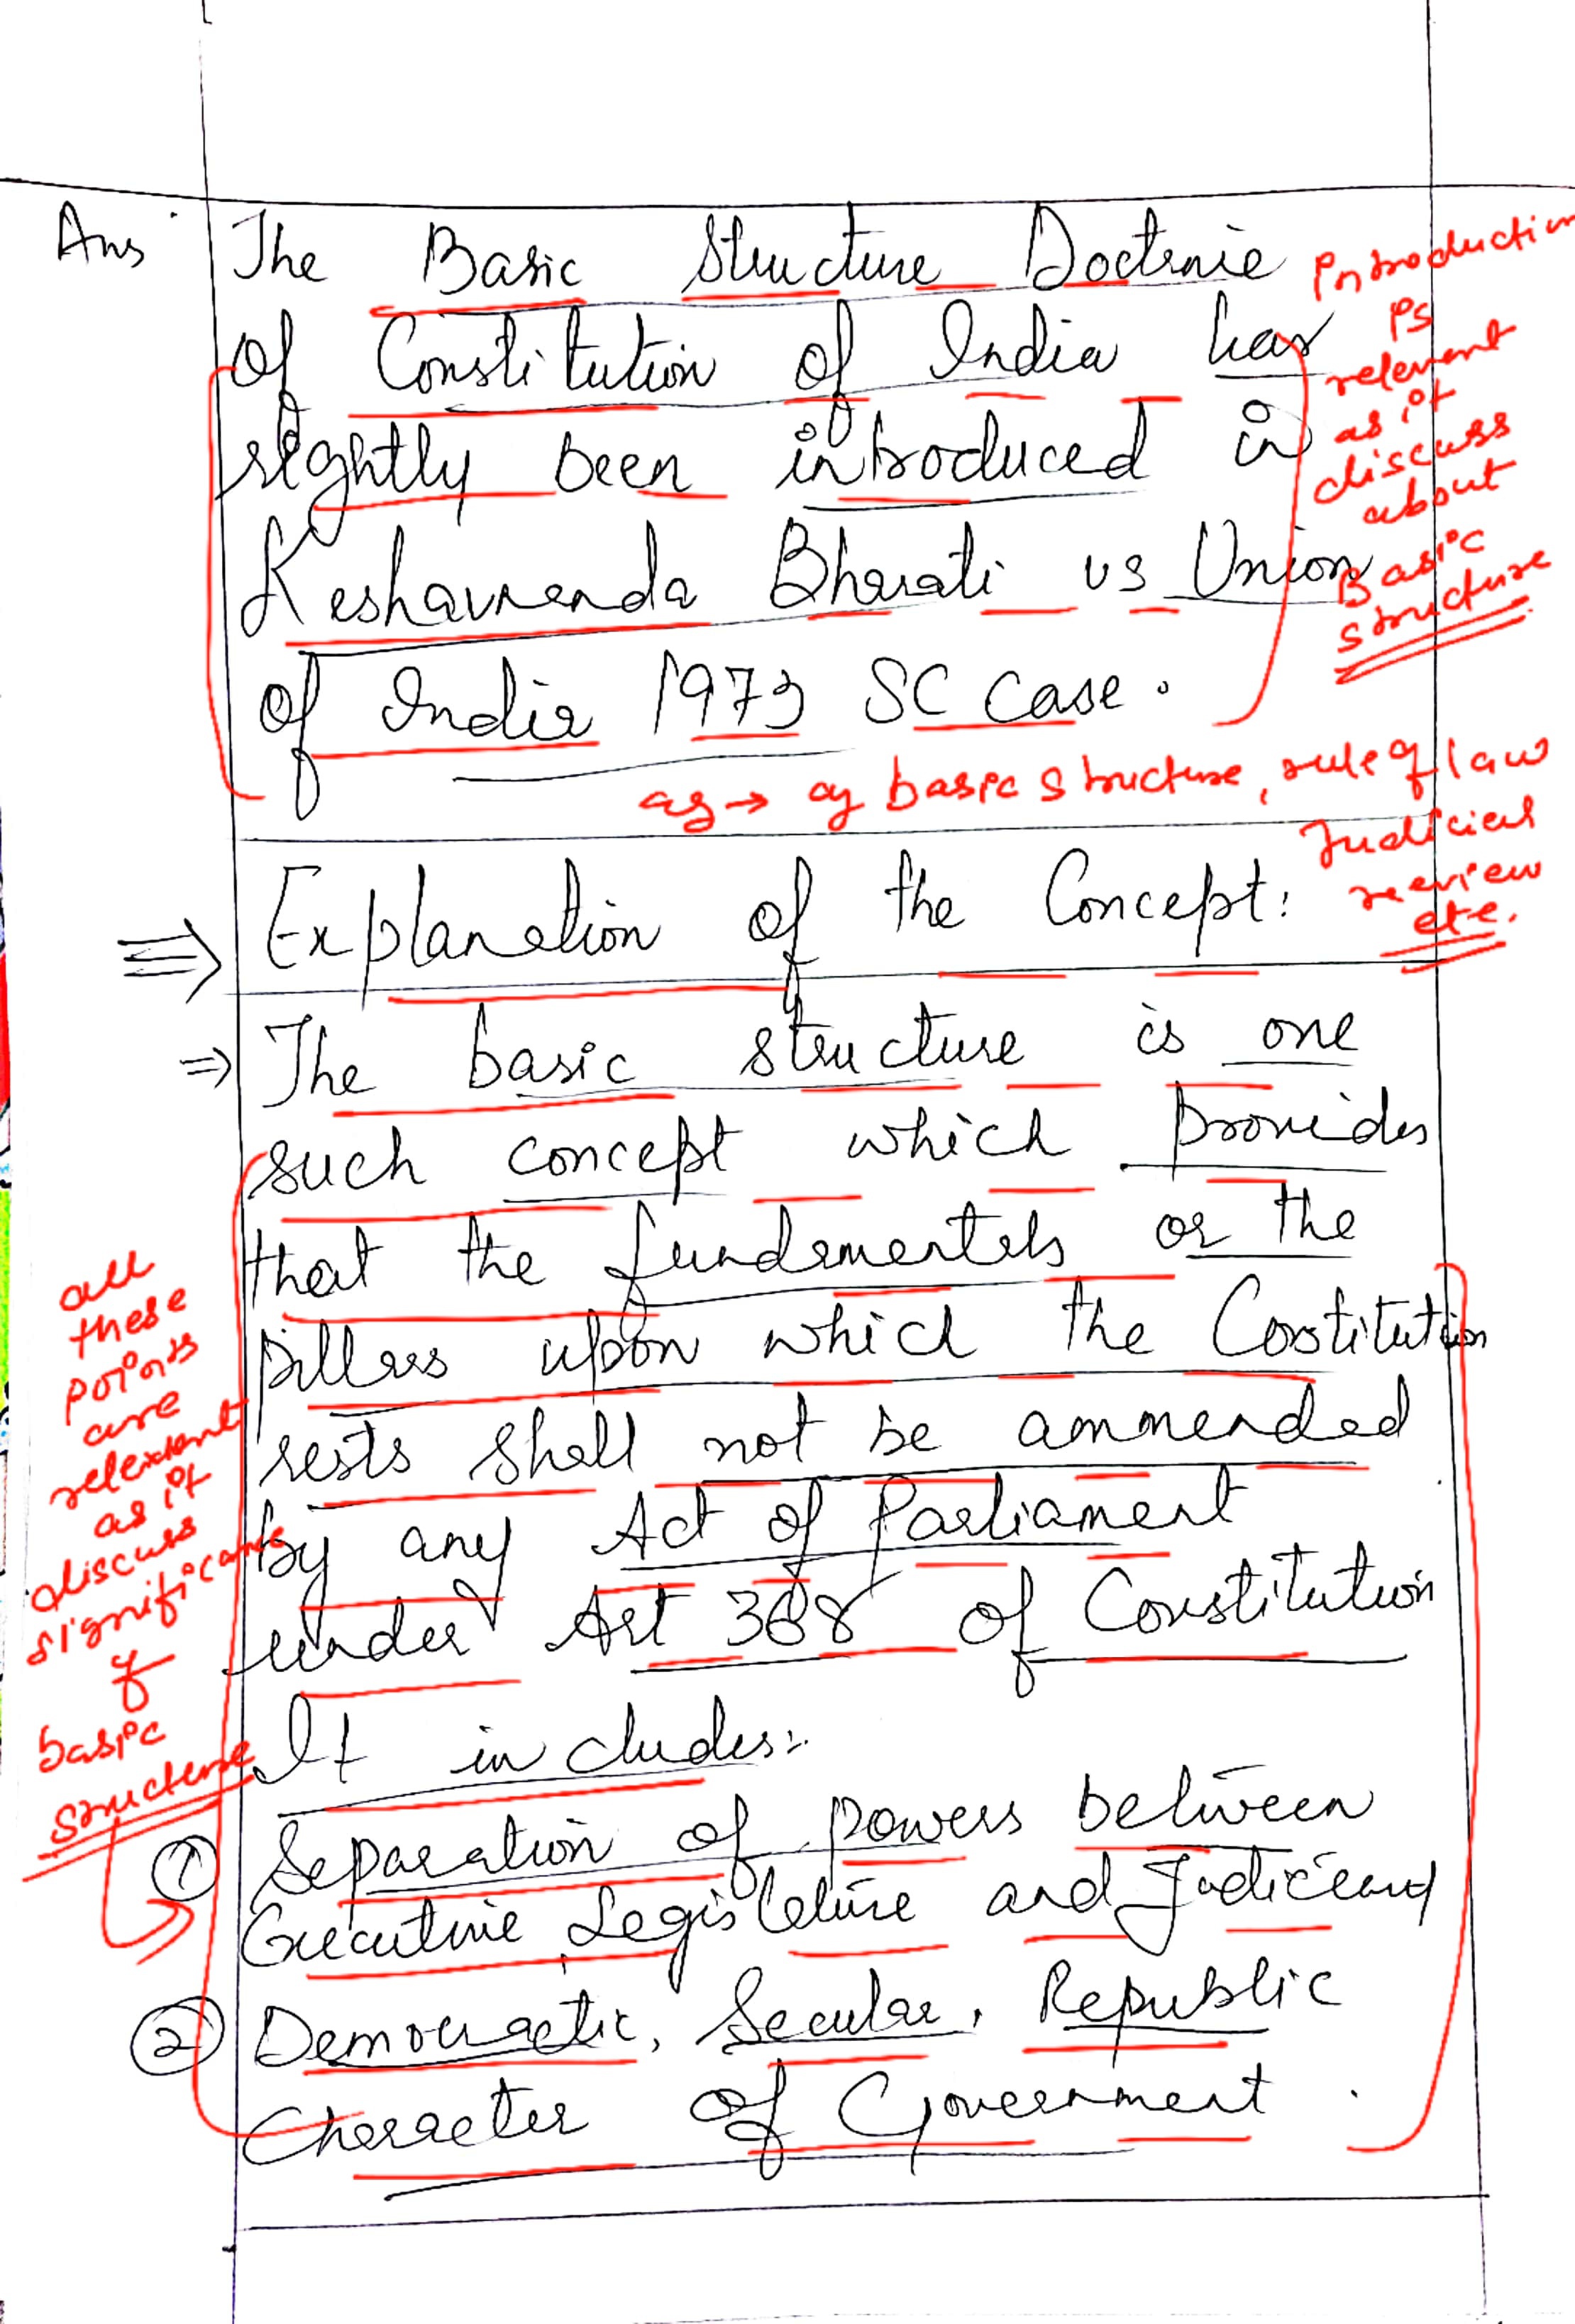 Ans
The Basic Structure Doctrine
of Constitution of India has
rightly been introduced in
Keshavnanda Bharati vs Union
of India 1973 SC Case.
Introduction
is
relevant
as it
discuss
about
Basic
structure
eg → of basic structure, rule of law
Judicial
review
etc.
⇒ Explanation of the Concept:
⇒ The basic structure is one
such concept which provides
that the fundamentals or the
pillars upon which the Costitution
rests shall not be ammended
by any Act of Parliament
under Art 368 of Constitution
It includes:
① Separation of powers between
Executive, Legislature and Judiciary
② Democractic, Secular, Republic
Character of Government.
all
these
points
are
relevant
as it
discuss
significance
of
basic
structure